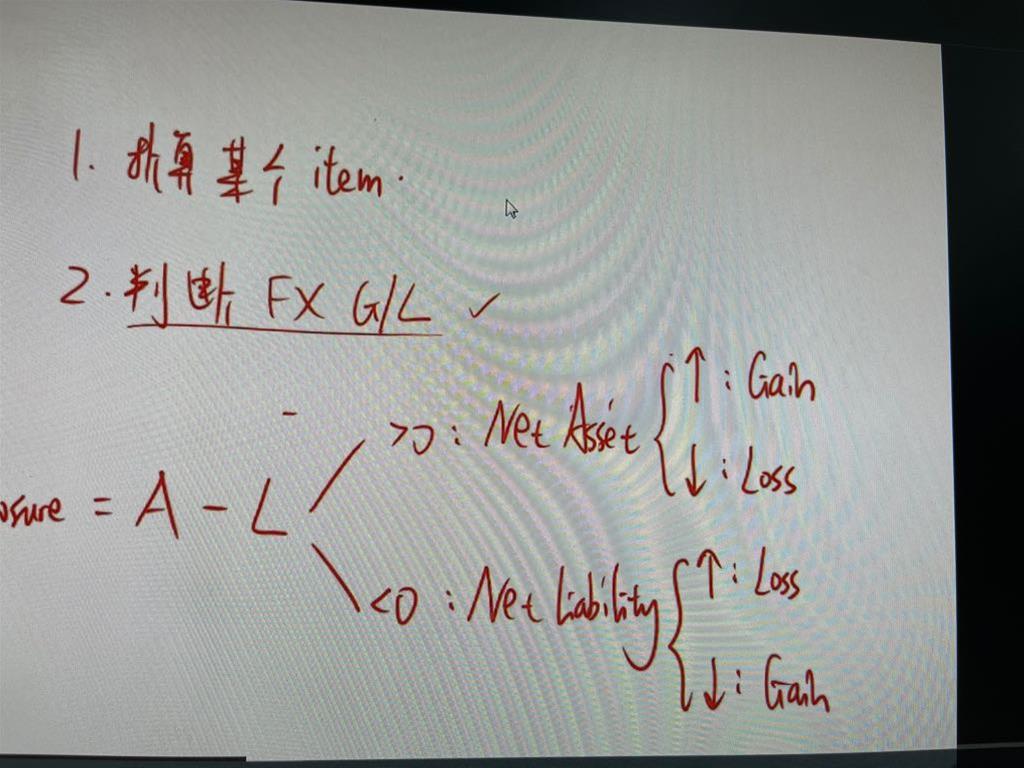 1. 折算某个 item.
2. 判断 FX G/L ✓
osure = A - L
>0 : Net Asset
↑ : Gain
↓ : Loss
<0 : Net Liability
↑ : Loss
↓ : Gain